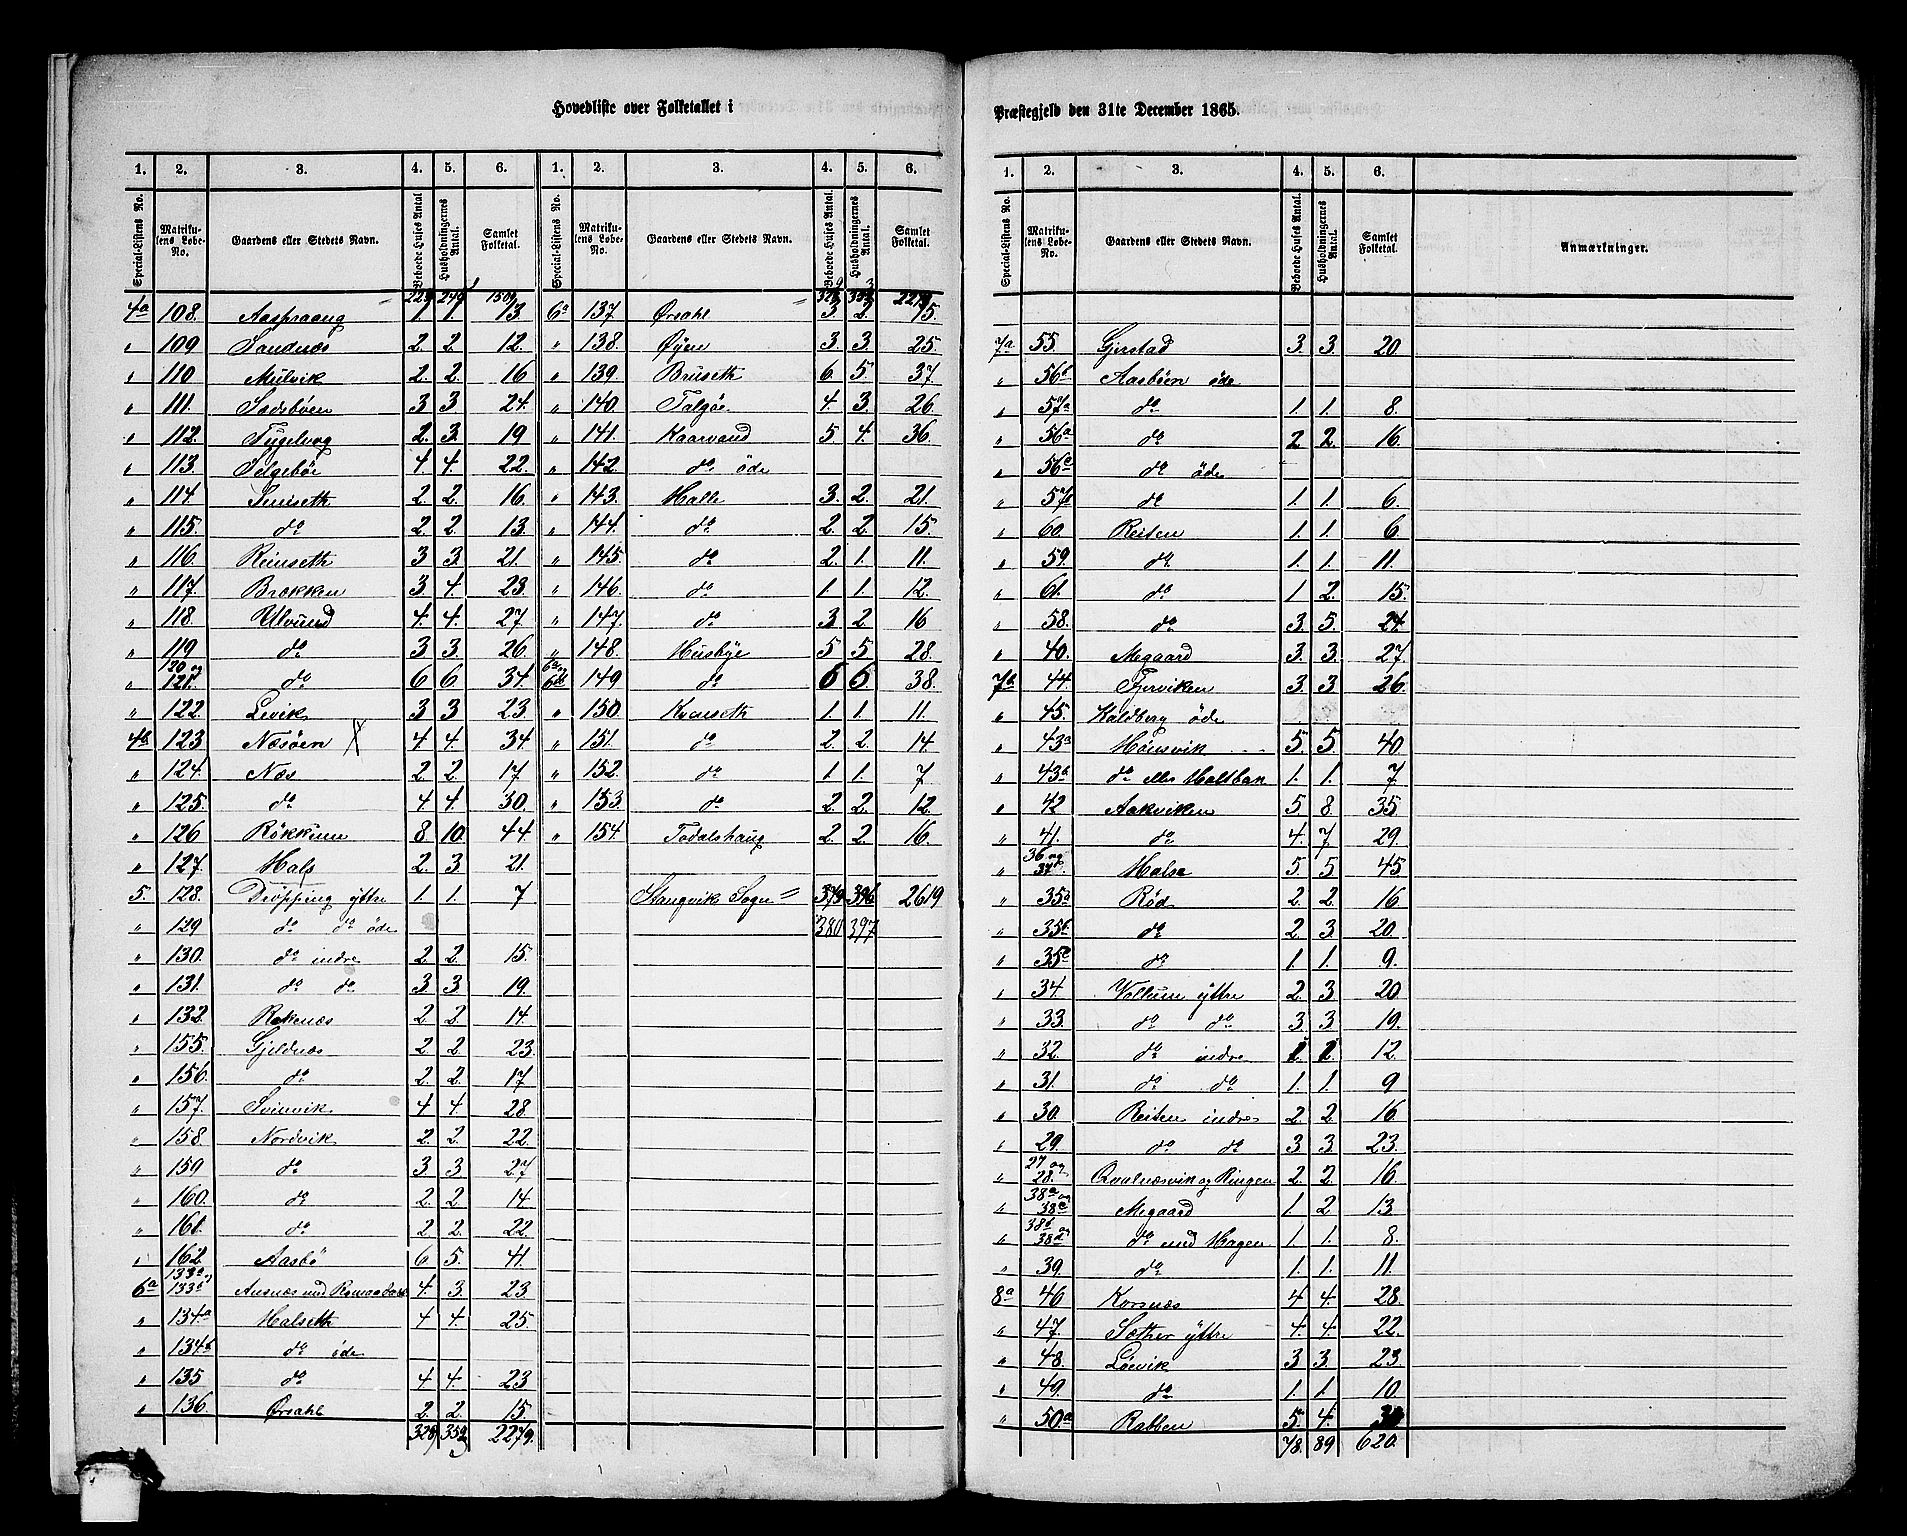 Hovedliste over Folketallet i
Præstegjeld den 31te December 1865.
1. 2. 3. 4. 5. 6. 1. 2. 3. 4. 5. 6.
Special-Listens No. Matrikulens Løbe-No. Gaardens eller Stedets Navn. Beboede Huses Antal Husholdningernes Antal. Samlet Folketal. Special-Listens No. Matrikulens Løbe-No. Gaardens eller Stedets Navn. Beboede Huses Antal. Husholdningernes Antal. Samlet Folketal.
4a 108. Aaspraang 1. 1. 13
„ 109 Sandnæs 2. 2. 12.
„ 110 Mulvik 2. 2. 16
„ 111. Sædsbøen 3 3. 24.
„ 112. Fugelvog 2. 3. 19
„ 113. Selgebøe 4. 4. 22.
„ 114. Sæusæth 2. 2. 16.
„ 115. do 2. 2. 13.
„ 116. Reinseth 3 3. 21.
„ 117. Brækken 3 4. 23.
„ 118. Ulvund 4. 4. 27
„ 119 do 3 3. 26.
„ 120 og 121. do 6 6. 34.
„ 122. Lervik 3 3. 23.
4b 123 Næsøen X 4. 4. 34
„ 124. Næs 2. 2. 17
„ 125. do 4 4. 30.
„ 126 Røkkum 8 10. 44
„ 127. Hals 2. 3 21.
5. 128. Drøpping yttre 1. 1. 7
„ 129 do do øde
„ 130. do indre 2. 2. 15.
„ 131. do do 3 3. 19.
„ 132. Rakenæs 2. 2. 14.
„ 155. Gjeldnæs 2. 2 23.
„ 156. do 2. 2. 17
„ 157. Svinvik 4 4. 28
„ 158. Nordvik 2. 2. 22.
„ 159 do 3 3. 27
„ 160. do 2. 2 14.
„ 161. do 2 2. 22.
„ 162. Aasbø 6 5. 41.
6a 133a 133b Ausnæs med 4. 3. 23
„ 134a Halseth 4 4. 25.
„ 134b do øde
„ 135 do 4 4. 23
„ 136. Ørsahl 2. 2. 15.
328 353 2279.
6a 137. Ørsahl 3. 2. 15.
„ 138. Øyen 3. 3. 25.
„ 139. Bruseth 6. 5. 37.
„ 140. Talgøe 4. 3. 26.
„ 141. Kaarvand 5 4. 36.
„ 142. do øde
„ 143. Halle 3. 2. 21.
„ 144. do 2. 2. 15.
„ 145. do 2. 1. 11.
„ 146. do 1. 1. 12.
„ 147. do 3 2 16
„ 148. Husbye 5 5 28.
6a og 6b 149 do 6 5. 38.
„ 150. Kvenseth 1. 1. 11.
„ 151. do 2. 2. 14.
„ 152. do 1. 1. 7
„ 153. do 2. 2. 12.
„ 154. Todalshaug 2. 2. 16.
Stangvik Sogn = 379 396 2619
380 397
1. 2. 3. 4. 5. 6.
Special-Listens No. Matrikulens Løbe-No. Gaardens eller Stedets Navn. Beboede Huses Antal. Husholdningernes Antal. Samlet Folketal. Anmærkninger.
7a 55. Gjerstad 3. 3. 20
„ 56b Aasbøen øde
„ 57a do 1. 1. 8.
„ 56a do 2 2. 16.
„ 56c do øde
„ 57b do 1. 1. 6.
„ 60. Reiten 1. 1. 6
„ 59. do 1. 1. 11.
„ 61. do 1 2. 15.
„ 58. do 3. 5. 24.
„ 40. Megaard 3. 3. 27
7b 44. Fjerviken 3. 3 26.
„ 45. Kaldberg øde
„ 43a Hønsvik 5. 5 40.
„ 43b do eller Haltbak 1. 1. 7
„ 42 Aakviken 5 8. 35.
„ 41. do 4. 7. 29.
„ 36 og 37. Halse 5. 5 45
„ 35a Rød 2. 2. 16
„ 35b do 2. 3. 20.
„ 35c do 1. 1. 9.
„ 34. Vollum yttre 2. 3 20
„ 33. do do 3. 3 19.
„ 32. do indre 2. 2. 12.
„ 31. do do 1. 1. 9
„ 30. Reiten indre 2. 2. 16
„ 29. do do 3 3. 23.
„ 27 og 28. Qvalnæsvik og Ringen 2. 2. 16
„ 38a og 38c Megaard 1. 2. 13.
„ 38b og 38d do med Hagen 1. 1. 8.
„ 39. do 1. 1. 11.
8a 46 Korsnæs 4 4. 28.
„ 47. Sæther yttre 4. 4. 22.
„ 48. Løevik 3 3. 23.
„ 49. do 1. 1. 10
„ 50a Rabben 5. 4.
78. 89 620.